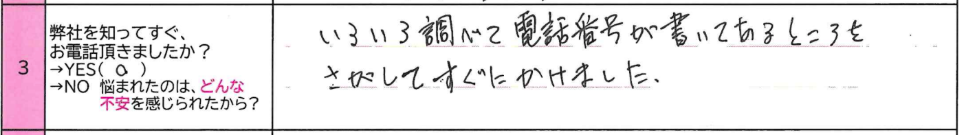 3
弊社を知ってすぐ、
お電話頂きましたか？
→YES( o )
→NO 悩まれたのは、どんな
不安を感じられたから？
いろいろ調べて電話番号が書いてあるところを
さがしてすぐにかけました.